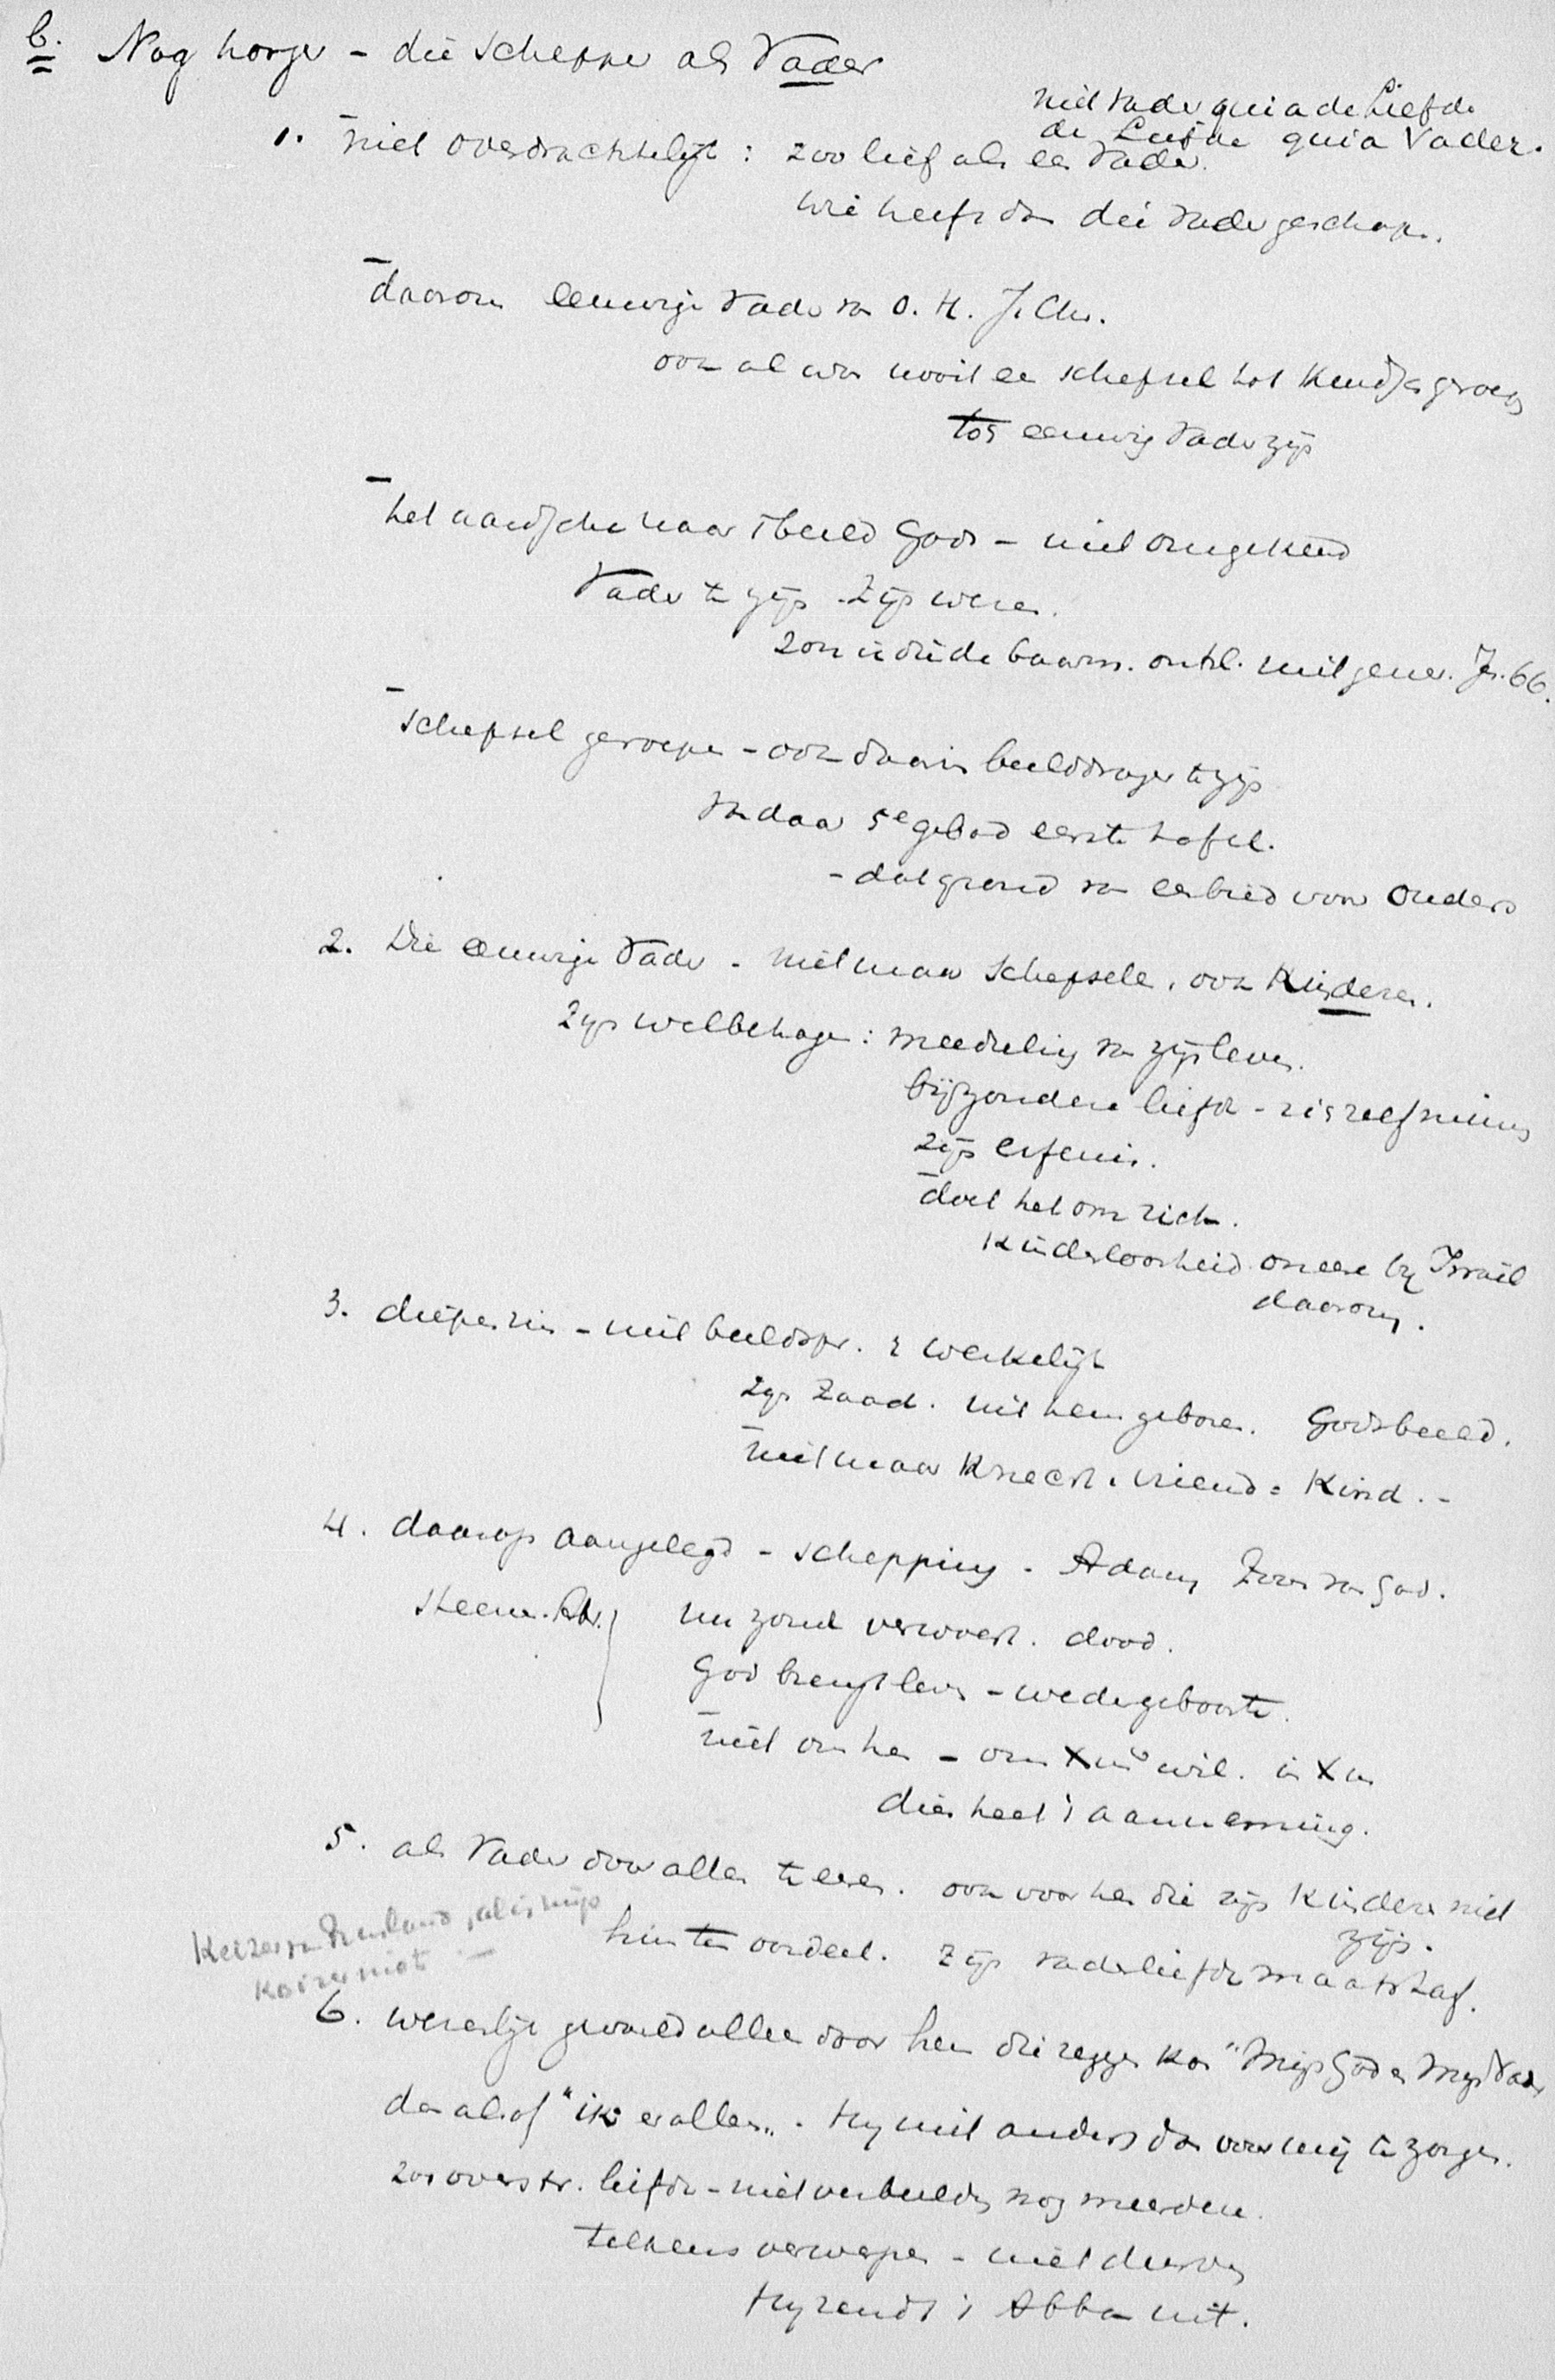 b. Nog hooger - die Schepper als Vader
niet Vader quia de Liefde
de Liefde quia Vader.
1. niet overdrachtelijk : zoo lief als een Vader.
wie heeft dan die Vader geschapen.
- daarom eeuwige Vader van O. H. J. Chr.
ook al was nooit een schepsel tot Kindsch geroepen
toch eeuwig Vader zijn
- het aardsche naar 't beeld Gods - niet omgekeerd
Vader te zijn - Zijn wezen.
zou ik die de baarm. ontsl. niet gener. Jes. 66.
- schepsel geroepen - ook daarin beelddrager te zijn
Vandaar 5e gebod eerste tafel.
- dat grond van eerbied voor Ouders
2. Die eeuwige Vader - niet maar schepselen, ook Kinderen.
Zijn welbehagen : meedeeling van zijn leven.
bijzondere liefde - zich zelf
zijn erfenis.
doet het om zich.
Kinderloosheid oneere bij Israël
daarom.
3. diepen zin - niet beeldspr. : werkelijk
zijn Zaad. uit hem geboren. Gods beeld.
niet maar Knecht. vriend = Kind. -
4. daarop aangelegd - schepping - Adam Zoon van God.
nu zonde verwoest. dood.
God brengt leven - wedergeboorte.
niet om hen - om Xus wil. in Xus
dier heet 't aanneming.
5. als Vader door allen te eeren. ook voor hen die zijn Kinderen niet
zijn.
Keizer van Rusland, al is mijn
Keizer niet -
hun ten oordeel. Zijn vaderliefde maatstaf.
6. wezenlijk alleen door hen die zeggen kan "Mijn God en Mijn Vader
dan alsof "ik er alleen". Hij niet anders dan voor mij te zorgen.
zoo overstr. liefde - niet verbeelding nog meerdere.
telkens verwerpen - niet durven
Hij zendt 't Abba uit.